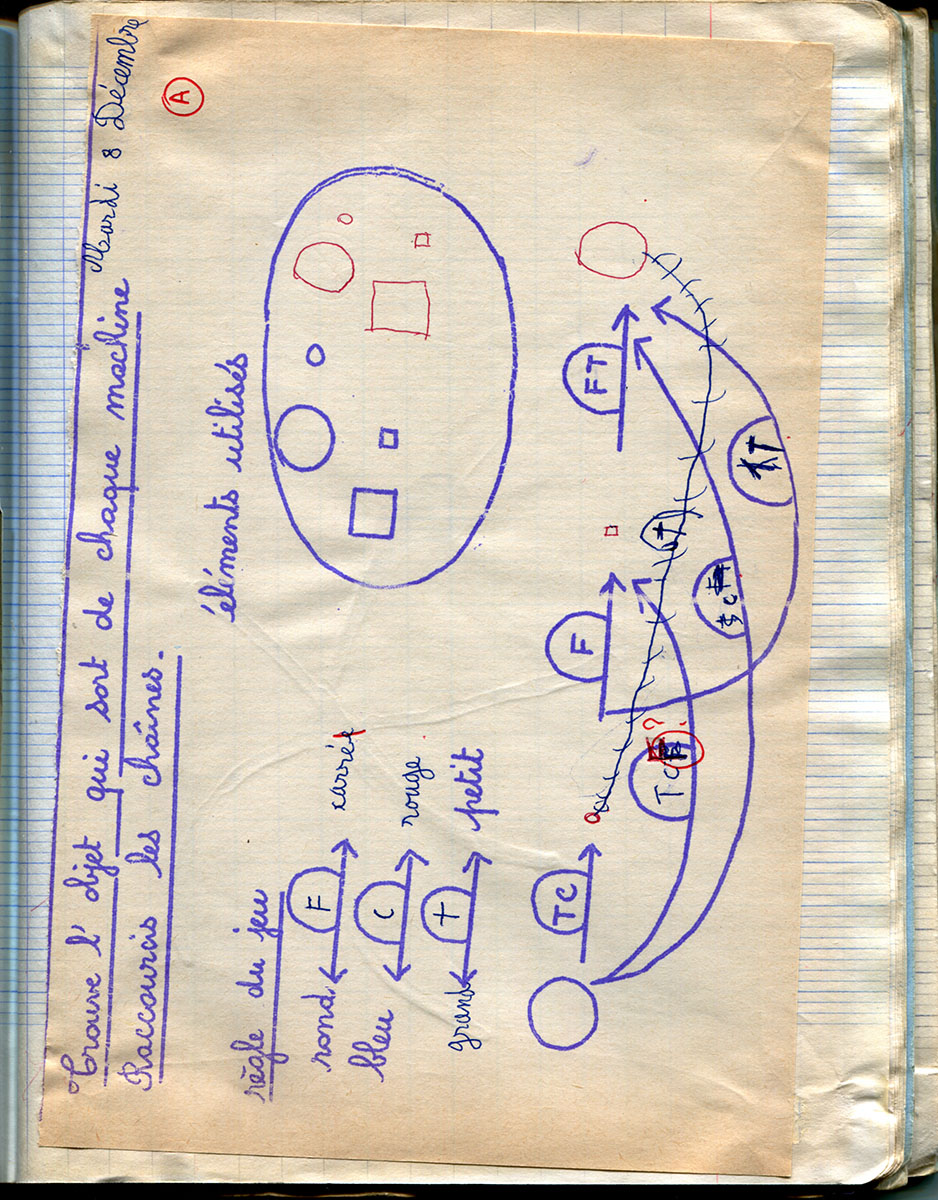 Mardi 8 Décembre
Trouve l'objet qui sort de chaque machine
Raccourcis les chaînes.
A
règle du jeu
éléments utilisés
rond F carré
bleu C rouge
grand T petit
TC F FT
TC F ?
T
C
T